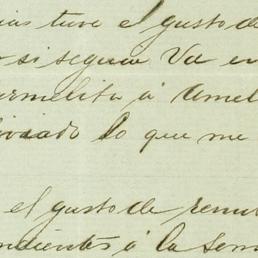 tuve el gusto de
si seguia Va en
armelita á Amel
lo que me
el gusto de remi
ndientes á la Sem